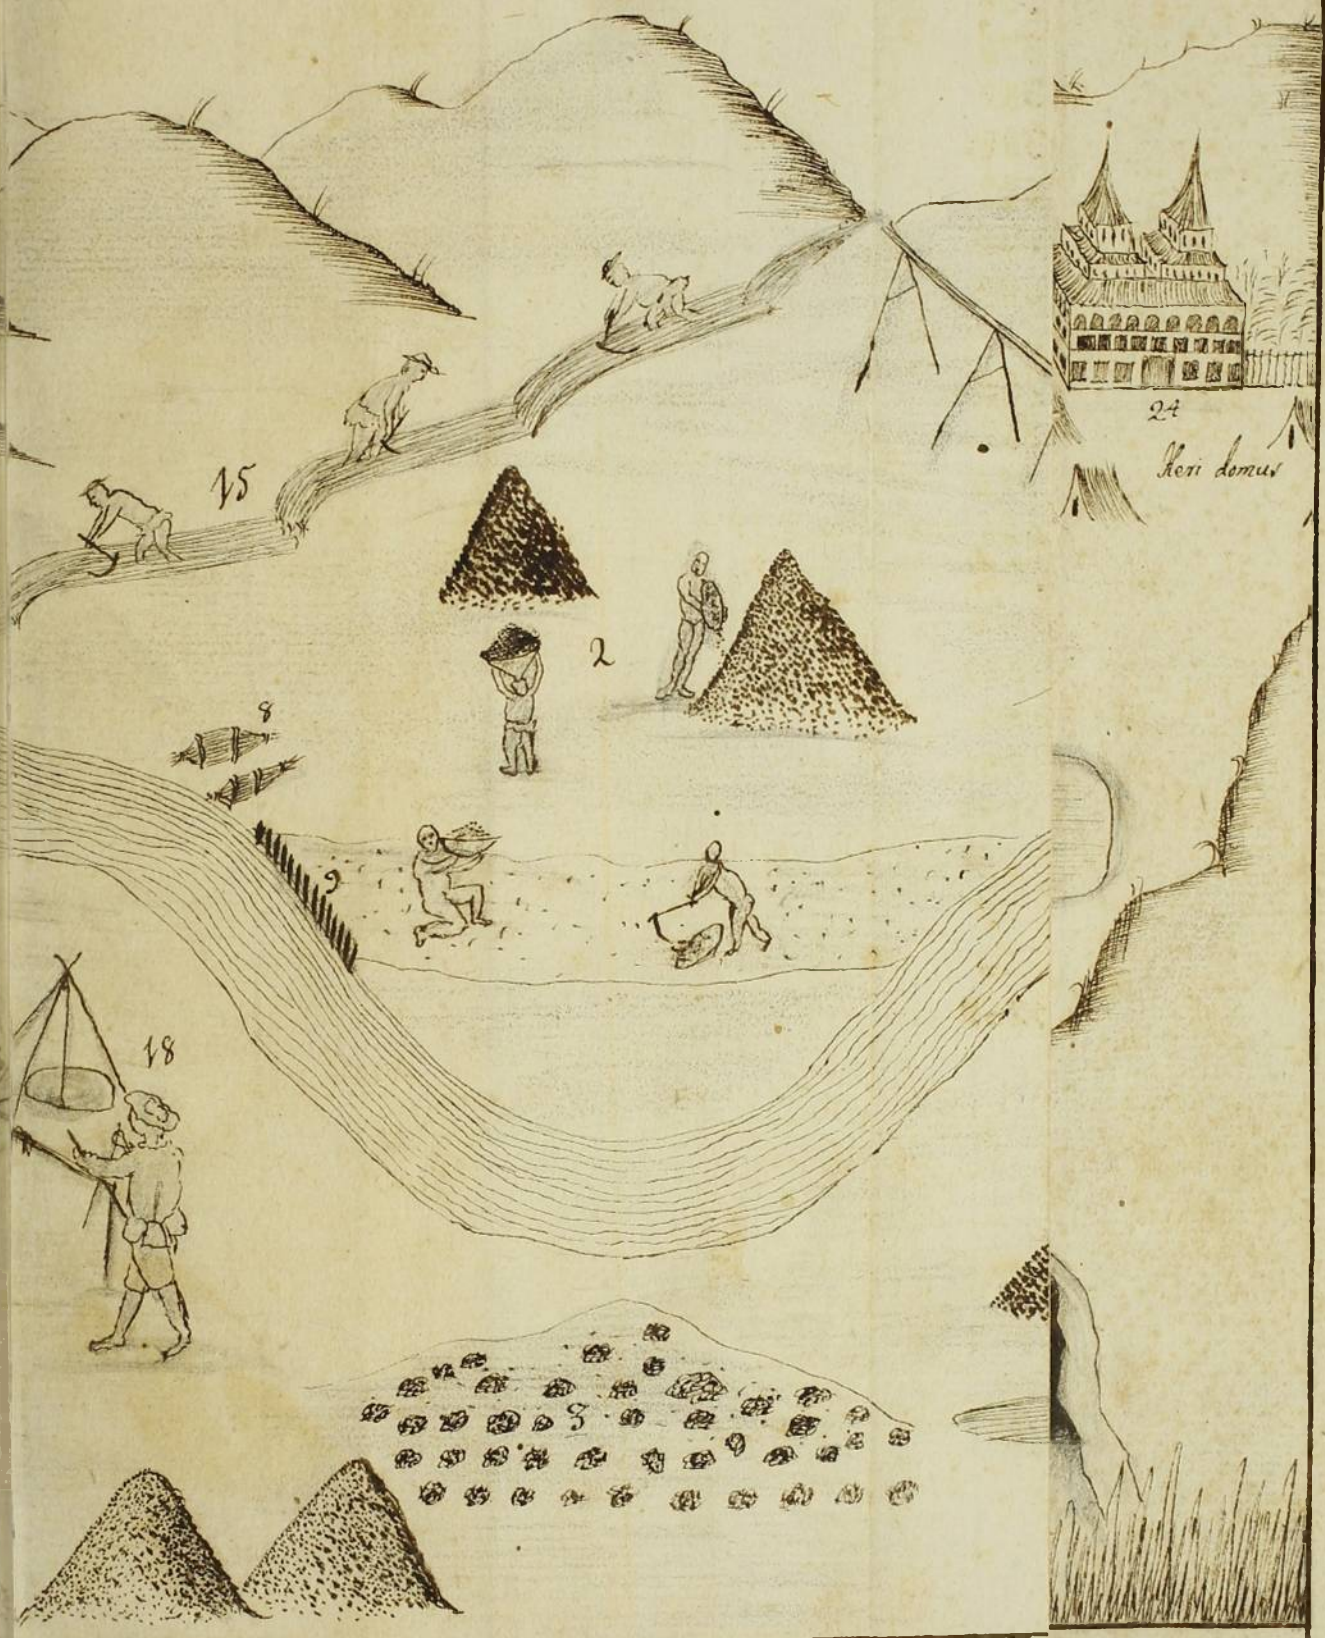 24
Heri domus
15
2
8
9
18
3